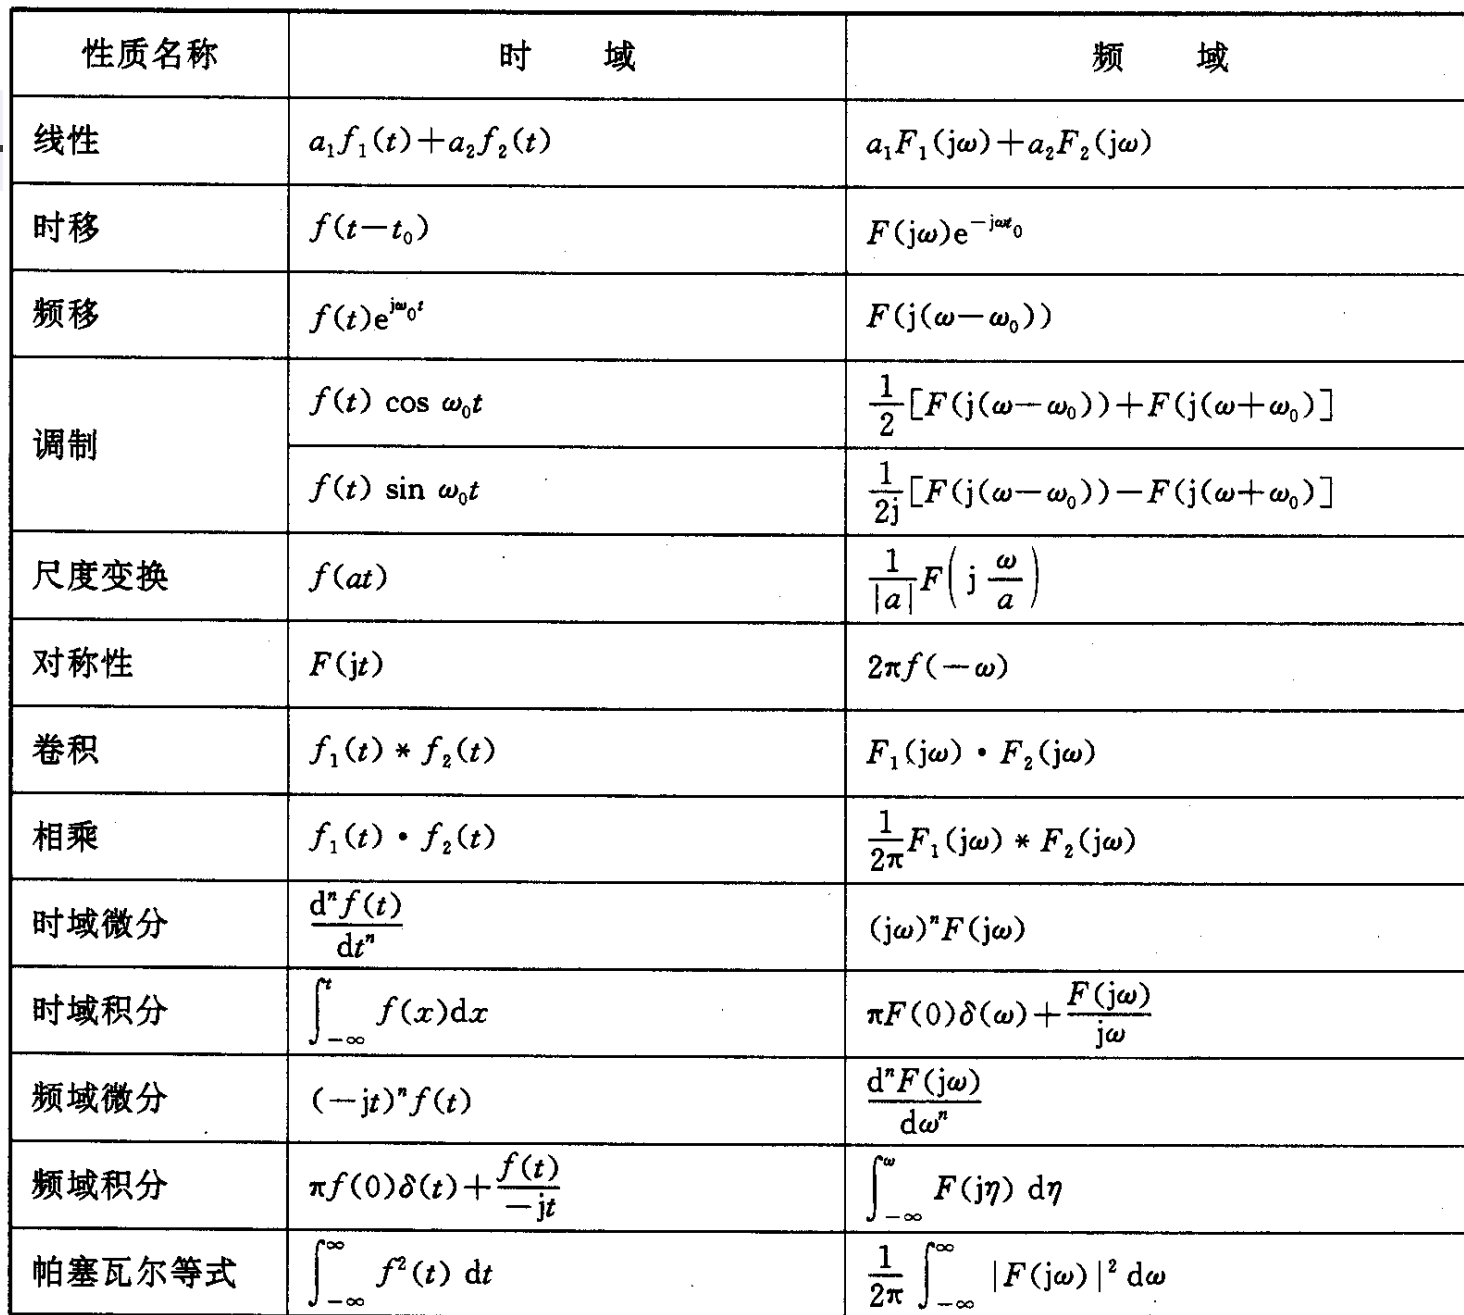 性质名称 时 域 频 域
线性 a₁f₁(t)+a₂f₂(t) a₁F₁(jω)+a₂F₂(jω)
时移 f(t−t₀) F(jω)e^{−jωt₀}
频移 f(t)e^{jω₀t} F(j(ω−ω₀))
调制 f(t) cos ω₀t \frac{1}{2}[F(j(ω−ω₀))+F(j(ω+ω₀)]
f(t) sin ω₀t \frac{1}{2j}[F(j(ω−ω₀))−F(j(ω+ω₀)]
尺度变换 f(at) \frac{1}{|a|}F(j\frac{ω}{a})
对称性 F(jt) 2πf(−ω)
卷积 f₁(t) * f₂(t) F₁(jω)・F₂(jω)
相乘 f₁(t)・f₂(t) \frac{1}{2π}F₁(jω) * F₂(jω)
时域微分 \frac{dⁿf(t)}{dtⁿ} (jω)ⁿF(jω)
时域积分 \int_{−∞}^{t} f(x)dx πF(0)δ(ω)+\frac{F(jω)}{jω}
频域微分 (−jt)ⁿf(t) \frac{dⁿF(jω)}{dωⁿ}
频域积分 πf(0)δ(t)+\frac{f(t)}{−jt} \int_{−∞}^{ω} F(jη) dη
帕塞瓦尔等式 \int_{−∞}^{∞} f²(t) dt \frac{1}{2π}\int_{−∞}^{∞} |F(jω)|² dω